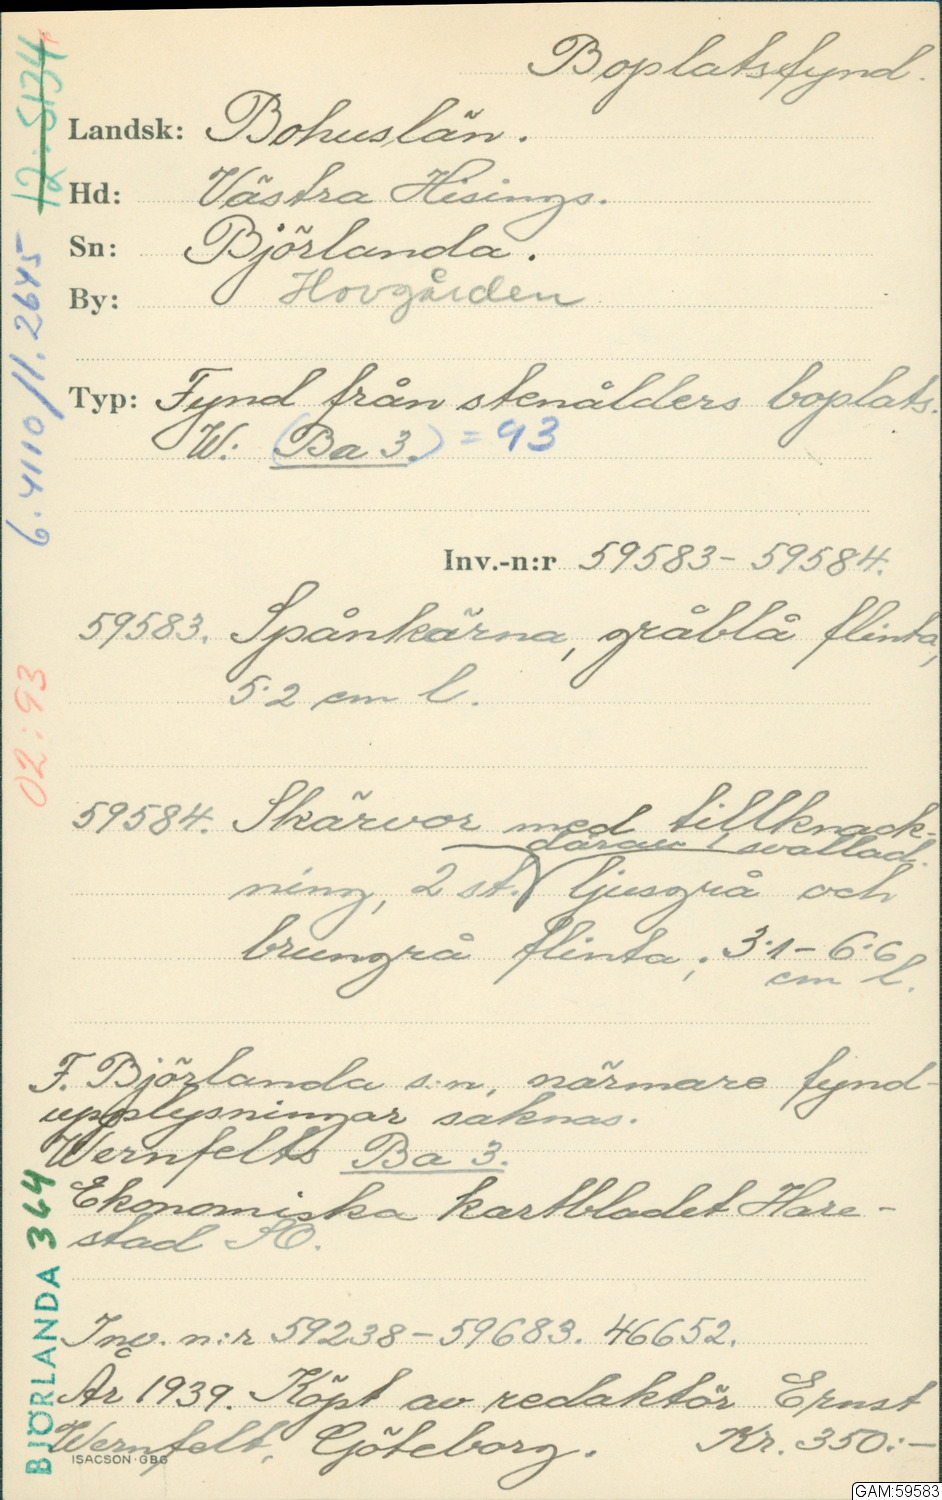 Boplatsfynd.
Landsk: Bohuslän.
Hd: Västra Hisings.
Sn: Björlanda.
By: Hovgården
Typ: Fynd från stenålders boplats.
W: (Ba 3.) = 93
Inv.-n:r 59583 - 59584.
59583. Spånkärna, gråblå flinta,
5.2 cm l.
59584. Skärvor med tillknack-
därav 1 svallad.
ning, 2 st. ljusgrå och
brungrå flinta; 3.1 - 6.6
cm l.
F. Björlanda s:n, närmare fynd-
upplysningar saknas.
Wernfelts Ba 3.
Ekonomiska kartbladet Hare-
stad SO.
Inv. n:r 59238 - 59683. 46652.
År 1939. Köpt av redaktör Ernst
Wernfelt, Göteborg. Kr. 350:-
ISACSON·GBG
12:5134
6.4110/1.2645
02:93
BJÖRLANDA 364
GAM:59583